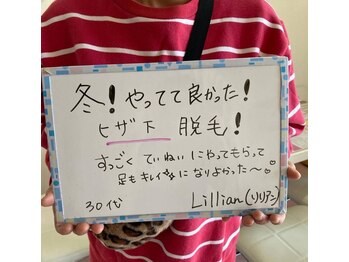 冬！やってて良かった！
ヒザ下 脱毛！
すっごく ていねいにやってもらって
足もキレイになりよかった〜♡
30代
Lillian(リリアン)